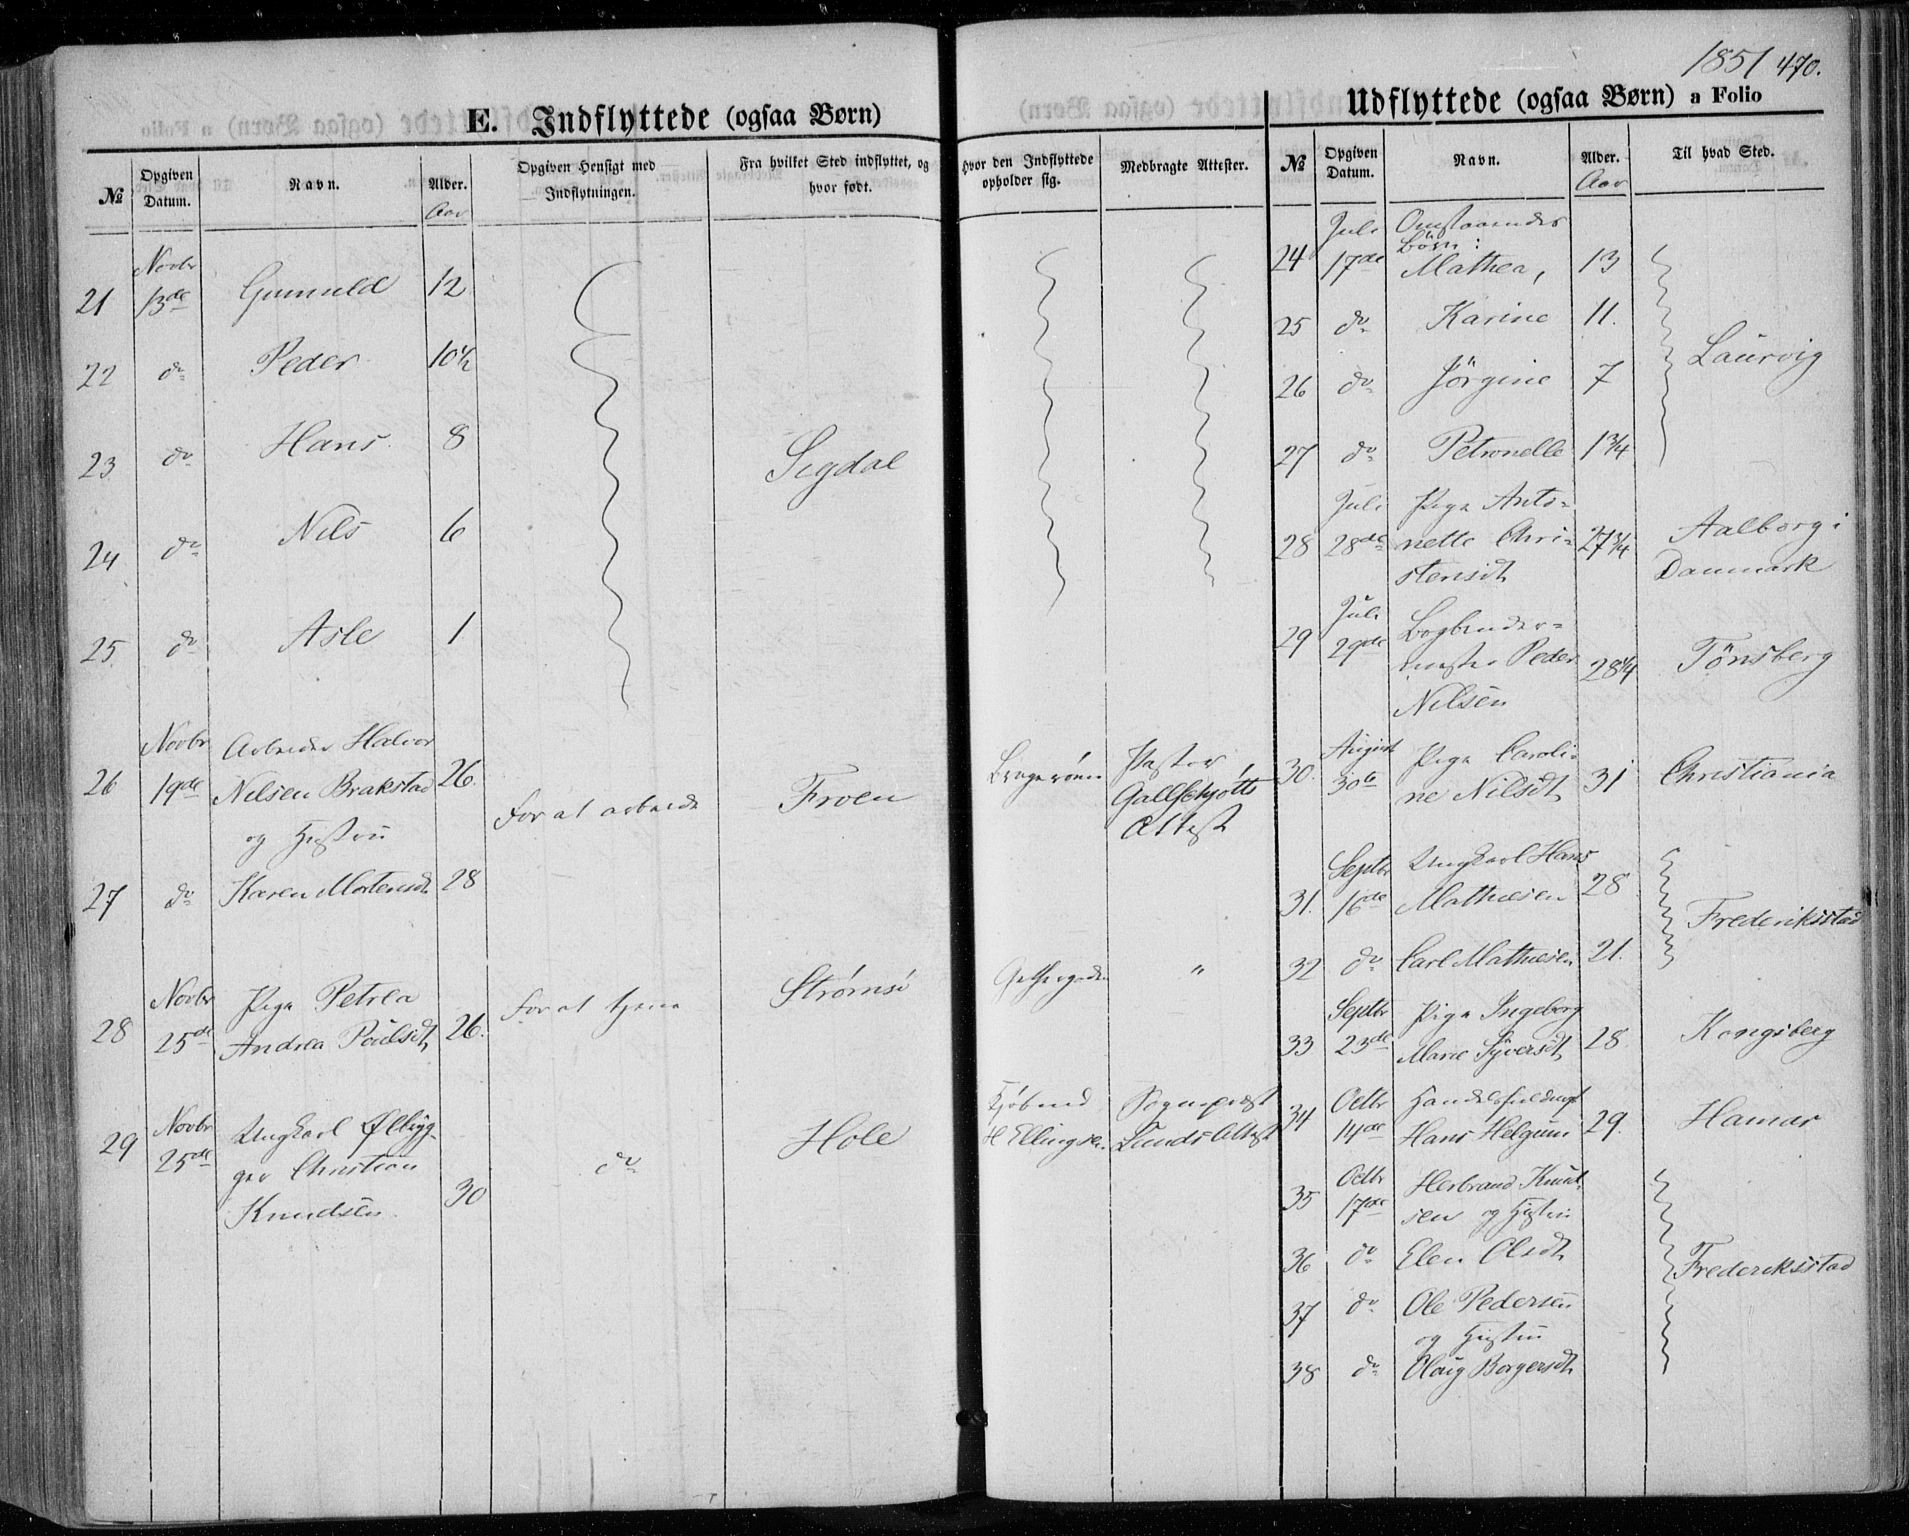 1851 470.
E. Indflyttede (ogsaa Børn)
№ Opgiven Datum. Navn. Alder. Opgiven Hensigt med Indflytningen. Fra hvilket Sted indflyttet, og hvor født. Hvor den Indflyttede opholder sig. Medbragte Attester.
Aar
Novbr
21 13de Gunnuld 12
22 do Peder 10½
23 do Hans 8 Sigdal
24 do Nils 6
25 do Asle 1
Novbr Arbeider Halvor
26 19de Nilsen Brakstad 26. For at arbeide Froen Bragernæs Pastor
og Hustru Attest
27 do Karen Mortensdt 28
Novbr Pige Petrea
28 25de Andrea Paulsdt 26. For at tjene Strømsö "
Novbr Ungkarl Ølbryg-
29 25de ger Christian do Hole Kjöbmd Sogneprest
Knudsen 30 H Ellingsen Lunds Attest
Udflyttede (ogsaa Børn) a Folio
№ Opgiven Datum. Navn. Alder. Til hvad Sted.
Aar
Juli Omstaaendes
Börn:
24 17de Mathea, 13
25 do Karine 11.
26 do Jörgine 7 Laurvig
27 do Petronelle 1¾
Juli Pige Anto-
28 28de nette Chri- 27¾ Aalborg i
stensdt Danmark
Juli Bogbinder-
29 29de mester Peder 28¼ Tönsberg
Nilsen
August Pige Caroli-
30. 30te ne Nilsdt 31 Christiania
Septbr Ungkarl Hans
31. 16de Mathiesen 28
32 do Carl Mathiesen 21. Frederiksstad
Septbr Pige Ingeborg
33 23de Marie Syversdt 28. Kongsberg
Octbr Handelsfuldmgt
34 14de Hans Helgum 29. Hamar
Octbr Herbrand Knut-
35 17de sen og Hustru
36 do Elen Olsdt Frederiksstad
37 do Ole Pedersen
og Hustru
38 do Olaug Borgersdt